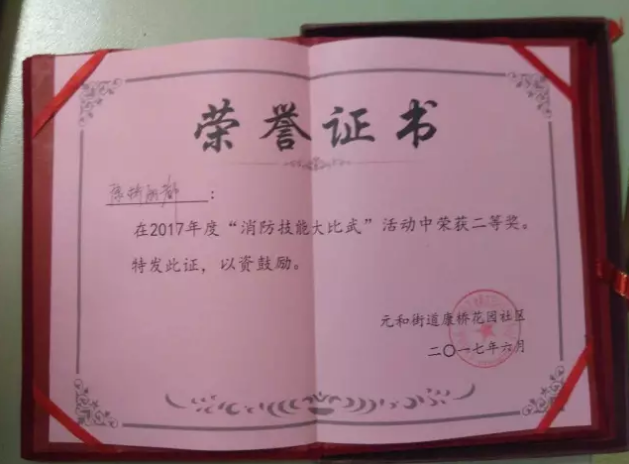 荣誉证书
康桥丽都：
在2017年度“消防技能大比武”活动中荣获二等奖。
特发此证，以资鼓励。
元和街道康桥花园社区
二〇一七年六月